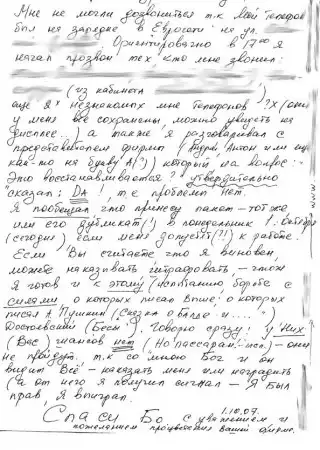 Мне не могли дозвониться т.к мой телефон
был на зарядке в Евросети на ул.
Ориентировочно в 17⁰⁰ я
начал прозвон тех, кто мне звонил:
(из кабинета
ещё 8х незнакомых мне телефонов ?х (они
у меня все сохранены, можно увидеть на
дисплее...) а также я разговаривал с
представителем фирмы ( Антон или
как-то на букву А(?) который на вопрос:-
Это восстанавливается?" утвердительно
"сказал: ДА , т.е проблемы нет.
Я пообещал что принесу пакет - тот же
или его дубликат(!) в понедельник 1: Октября
(сегодня) если меня допустят(?!) к работе.
Если Вы считаете что я виновен,
можете наказывать штрафовать, -
я готов и к этому (испытанию, борьбе с
силами о которых писал Выше; о которых
писал А. Пушкин (Сказка о "....")
Достоевский (Бесы"). Говорю сразу: у Них
(Вас) шансов нет (Но пассаран!-исп.) - они
не пройдут. т.к со мною Бог и он
видит Всё - наказать меня или наградить
(а от него я получил сигнал - Я Был
прав, я выиграл.
Спаси Бо, с уважением и 1.10.07.
пожеланием процветания Вашей фирме.
www